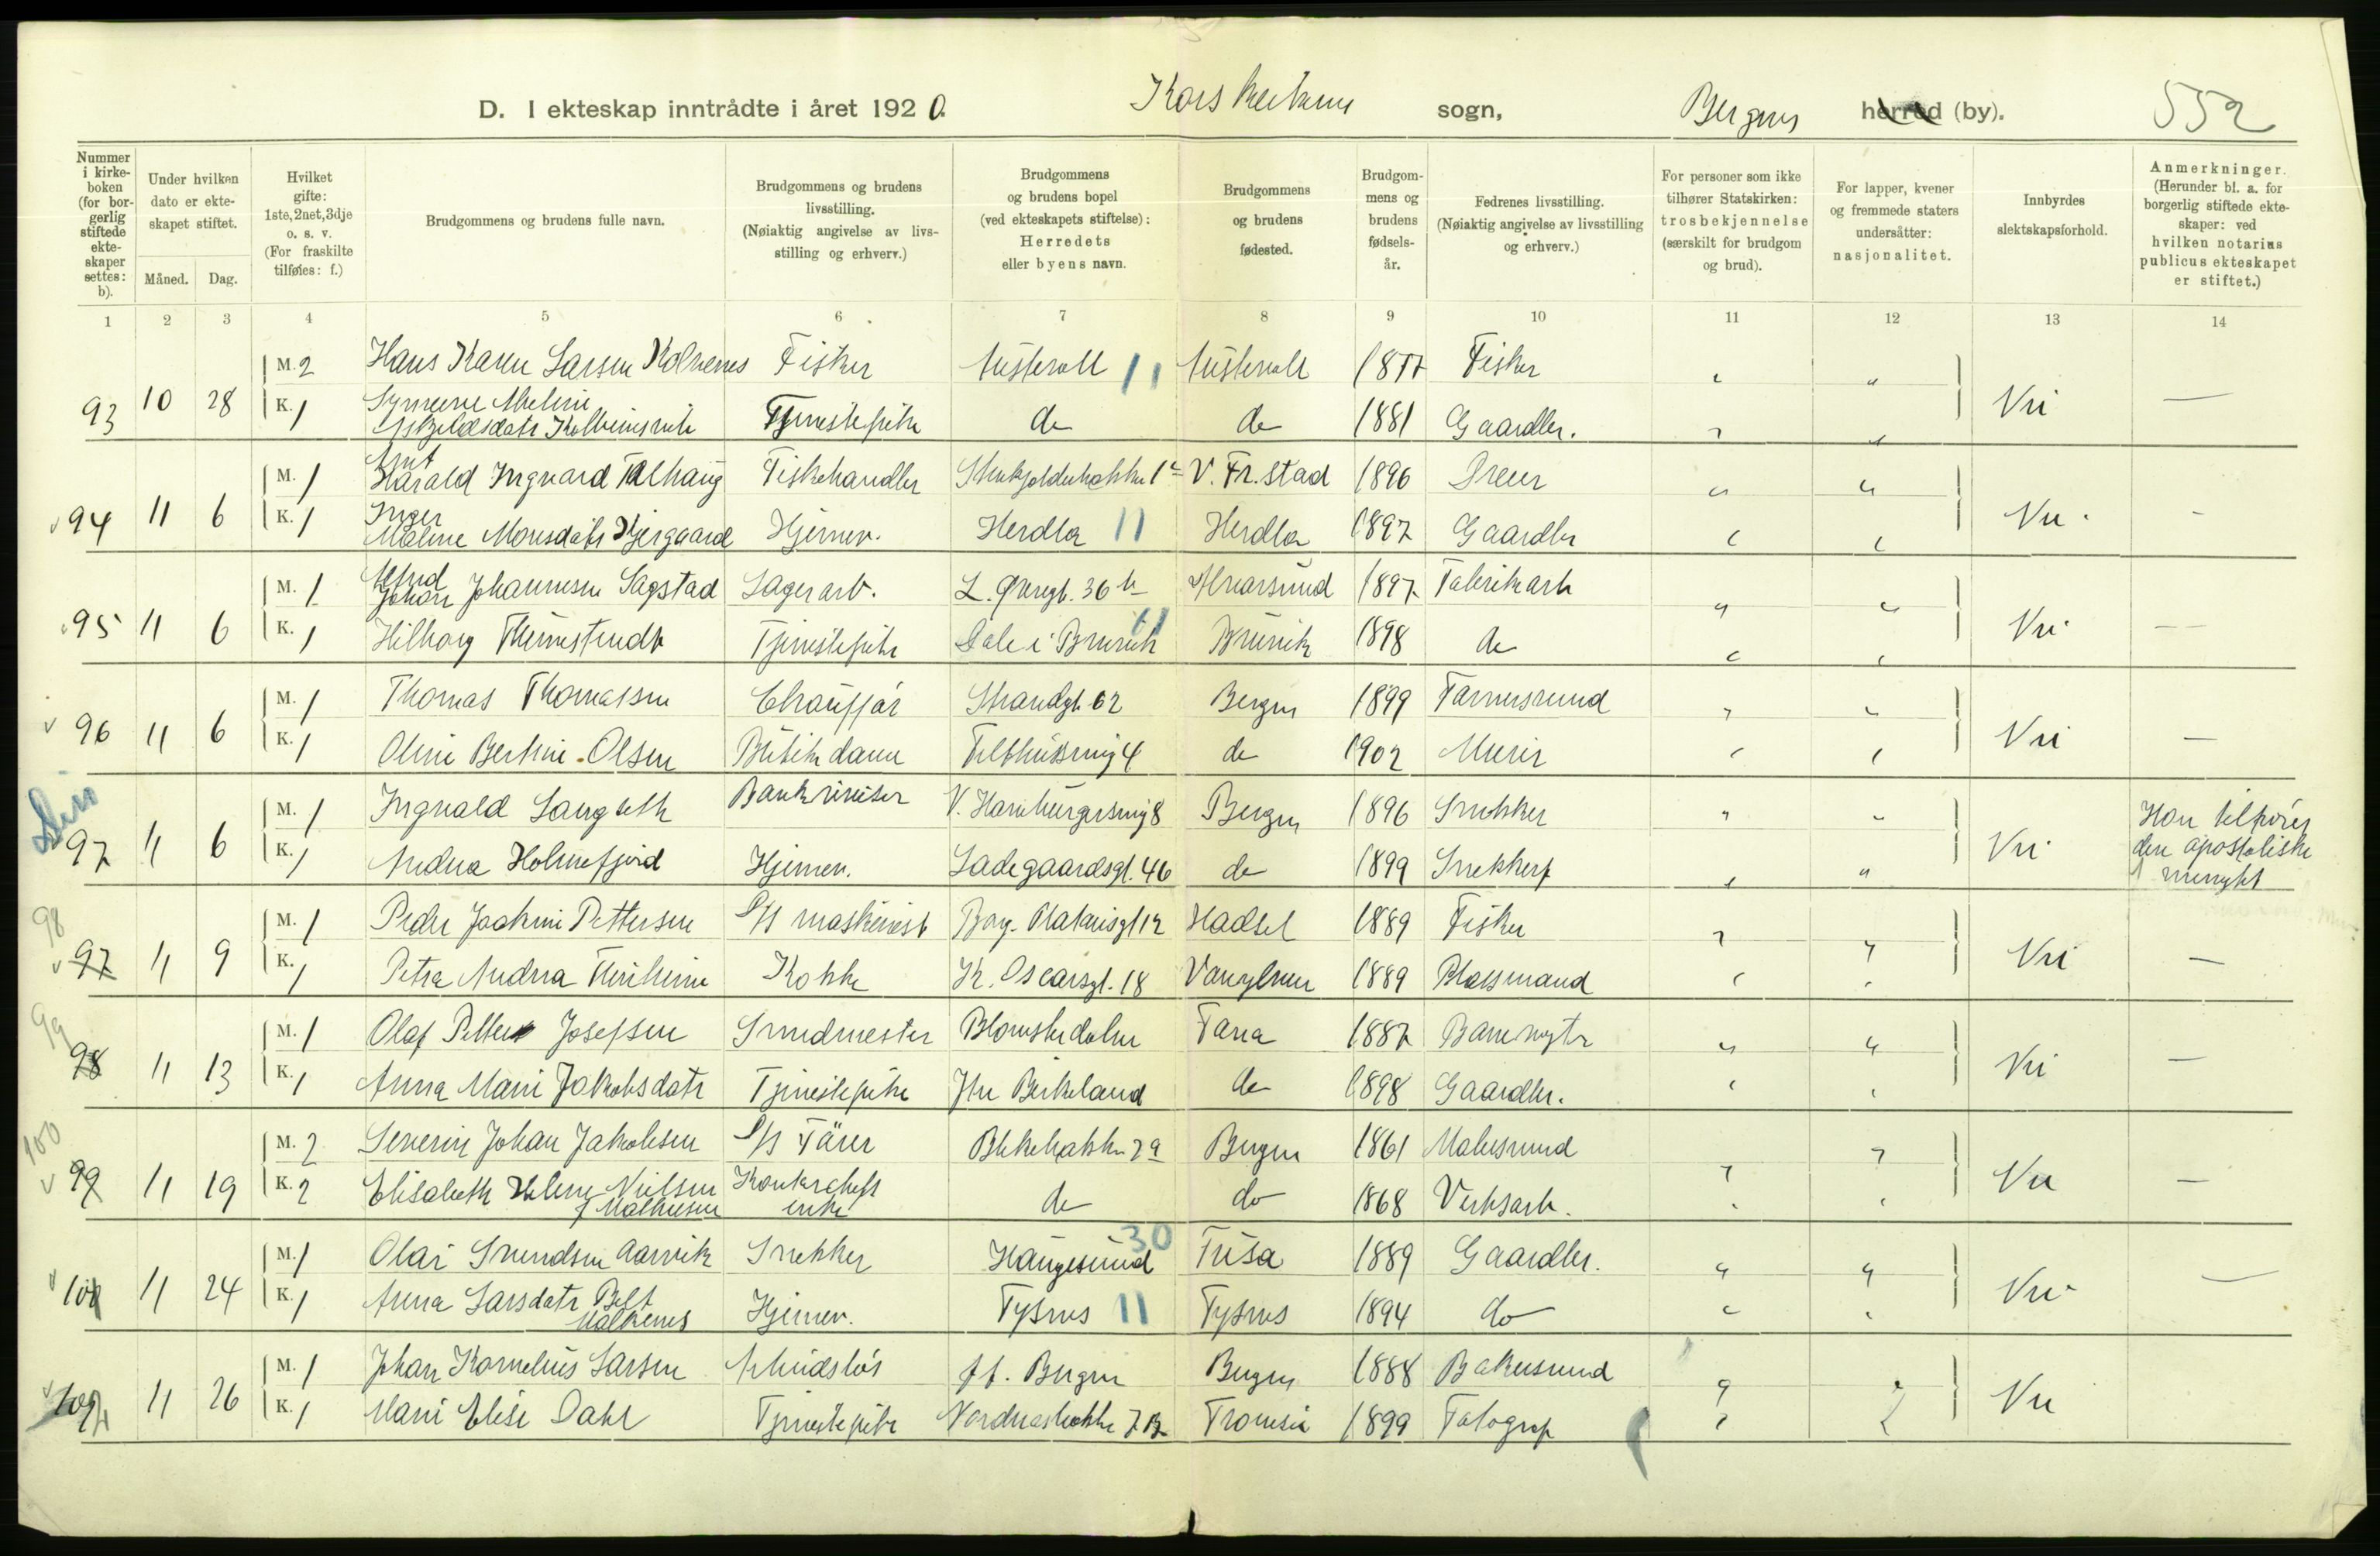 D. I ekteskap inntrådte i året 1920. Korskirkens sogn, Bergens herred (by). 552
Nummer i kirkeboken (for borgerlig stiftede ekteskaper settes: b).
Under hvilken dato er ekteskapet stiftet.
Måned. Dag.
Hvilket gifte: 1ste, 2net, 3dje o. s. v. (For fraskilte tilføies: f.)
Brudgommens og brudens fulle navn.
Brudgommens og brudens livsstilling. (Nøiaktig angivelse av livsstilling og erhverv.)
Brudgommens og brudens bopel (ved ekteskapets stiftelse): Herredets eller byens navn.
Brudgommens og brudens fødested.
Brudgommens og brudens fødselsår.
Fedrenes livsstilling. (Nøiaktig angivelse av livsstilling og erhverv.)
For personer som ikke tilhører Statskirken: trosbekjennelse (særskilt for brudgom og brud).
For lapper, kvener og fremmede staters undersåtter: nasjonalitet.
Innbyrdes slektskapsforhold.
Anmerkninger. (Herunder bl. a. for borgerlig stiftede ekteskaper: ved hvilken notarius publicus ekteskapet er stiftet.)
1 2 3 4 5 6 7 8 9 10 11 12 13 14
M. 2 Hans Larsen Kolvenes Fisker Austevoll 11 Austevoll 1877 Fisker
93 10 28 K. 1 Tjenestepike do do 1881 Gaardbr. Nei —
M. 1 Harald Ingvard Fiskehandler V. Fr.stad 1896 Dreier
94 11 6 K. 1 Inger Maline Monsdatr Hjemmev. Herdla 11 Herdla 1897 Gaardbr Nei -
M. 1 Johan Johannesen Sagstad Lagerarb. L. Øvregt. 36 b Alvarsund 1897 Fabrikarb
95 11 6 K. 1 Tjenestepike Dale i Bruvik 11 Bruvik 1898 do Nei —
M. 1 Thomas Thomassen Chauffør Strandgt 62 Bergen 1899 Tømmermand
96 11 6 K. 1 Oline Bertine Olsen Butikdame 4 do 1902 Murer Nei —
M. 1 Ingvald Langseth V. Hamburgersmug 8 Bergen 1896 Snekker
97 11 6 K. 1 Andrea Holmefjord Hjemmev. Ladegaardsgt. 46 do 1899 Snekkerf Nei Hun tilhører den apostoliske menighet
98
M. 1 Peder Joakim Pettersen S/S maskinist 12 Hadsel 1889 Fisker
97 11 9 K. 1 Petra Andrea Kokke K. Oscarsgt. 18 Vanylven 1889 Plassmand Nei —
99
M. 1 Olaf Petter Josefsen Smedmester Blomsterdalen Fana 1887 Banevogter
98 11 13 K. 1 Anna Marie Jakobsdatr Tjenestepike Ytre Birkeland do 1898 Gaardbr. Nei —
100
M. 2 Severin Johan Jakobsen S/S Blekebakken 2a Bergen 1861 Malersvend
99 11 19 K. 2 Elisabeth Helene Nielsen f Mathiesen enke do do 1868 Verksarb. Nei —
M. 1 Olai Svendsen Aarvik Snekker Haugesund 30 Fusa 1889 Gaardbr.
100 11 24 K. 1 Anna Larsdatr Hjemmev. Tysnes 11 Tysnes 1894 do Nei —
M. 1 Johan Kornelius Larsen Arbeidsløs ff. Bergen Bergen 1888 Bakersvend
11 26 K. 1 Marie Elise Dahl Tjenestepike Nordnesbakken 7 B Tromsø 1899 Fotograf Nei